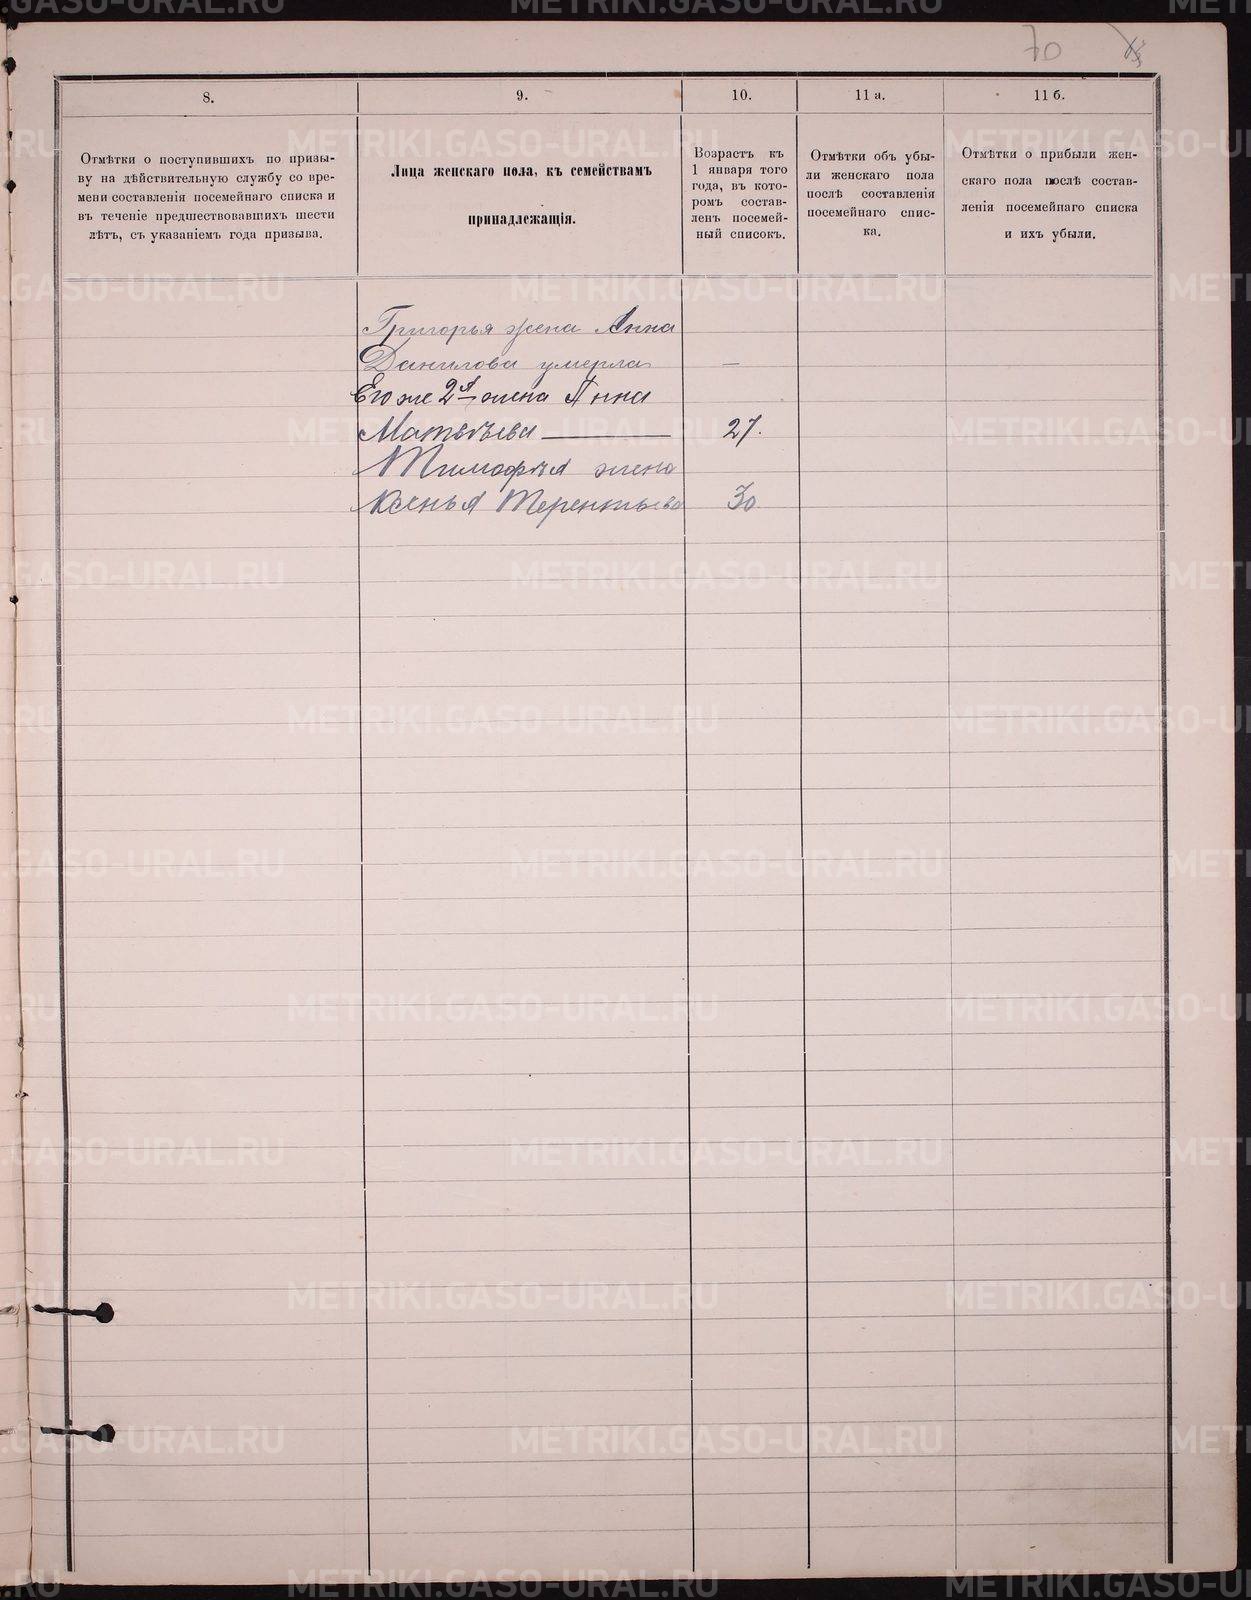 70
8.
9.
10.
11 а.
11 б.
Отмѣтки о поступившихъ по призы-
ву на дѣйствительную службу со вре-
мени составленія посемейнаго списка и
въ теченіе предшествовавшихъ шести
лѣтъ, съ указаніемъ года призыва.
Лица женскаго пола, къ семействамъ
принадлежащія.
Возрастъ къ
1 января того
года, въ кото-
ромъ состав-
ленъ посемей-
ный списокъ.
Отмѣтки объ убы-
ли женскаго пола
послѣ составленія
посемейнаго спис-
ка.
Отмѣтки о прибыли жен-
скаго пола послѣ состав-
ленія посемейнаго списка
и ихъ убыли.
Григорья жена Анна
Данилова умерла —
Его же 2я жена Анна
Матвѣева — 27.
Тимофѣя жена
Ксенья Терентьева 30.
METRIKI.GASO-URAL.RU